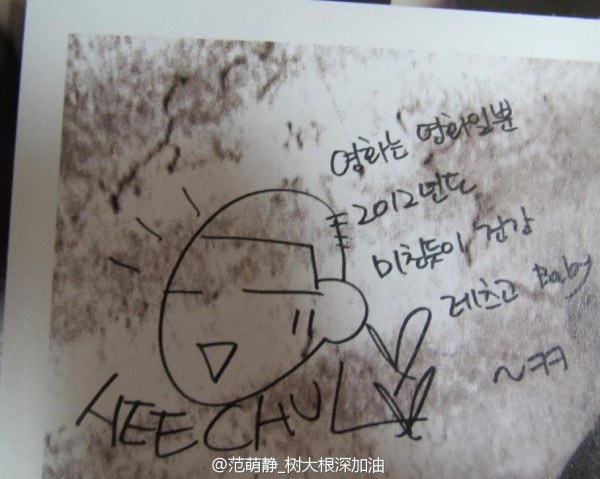 영화는 영화일뿐
2012년도
미친듯이 건강
레츠고 Baby
~ㅋㅋ
HEECHUL
@范萌静_树大根深加油